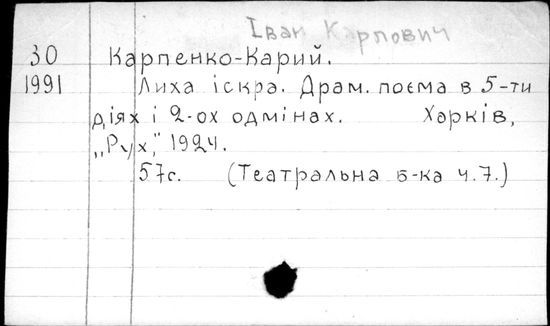 Іван Карпович
30 Карпенко-Карий.
1991 Лиха іскра. Драм. поєма в 5-ти
діях і 2-ох одмінах. Харків,
„Рух", 1924.
57с. (Театральна б-ка ч.7.)